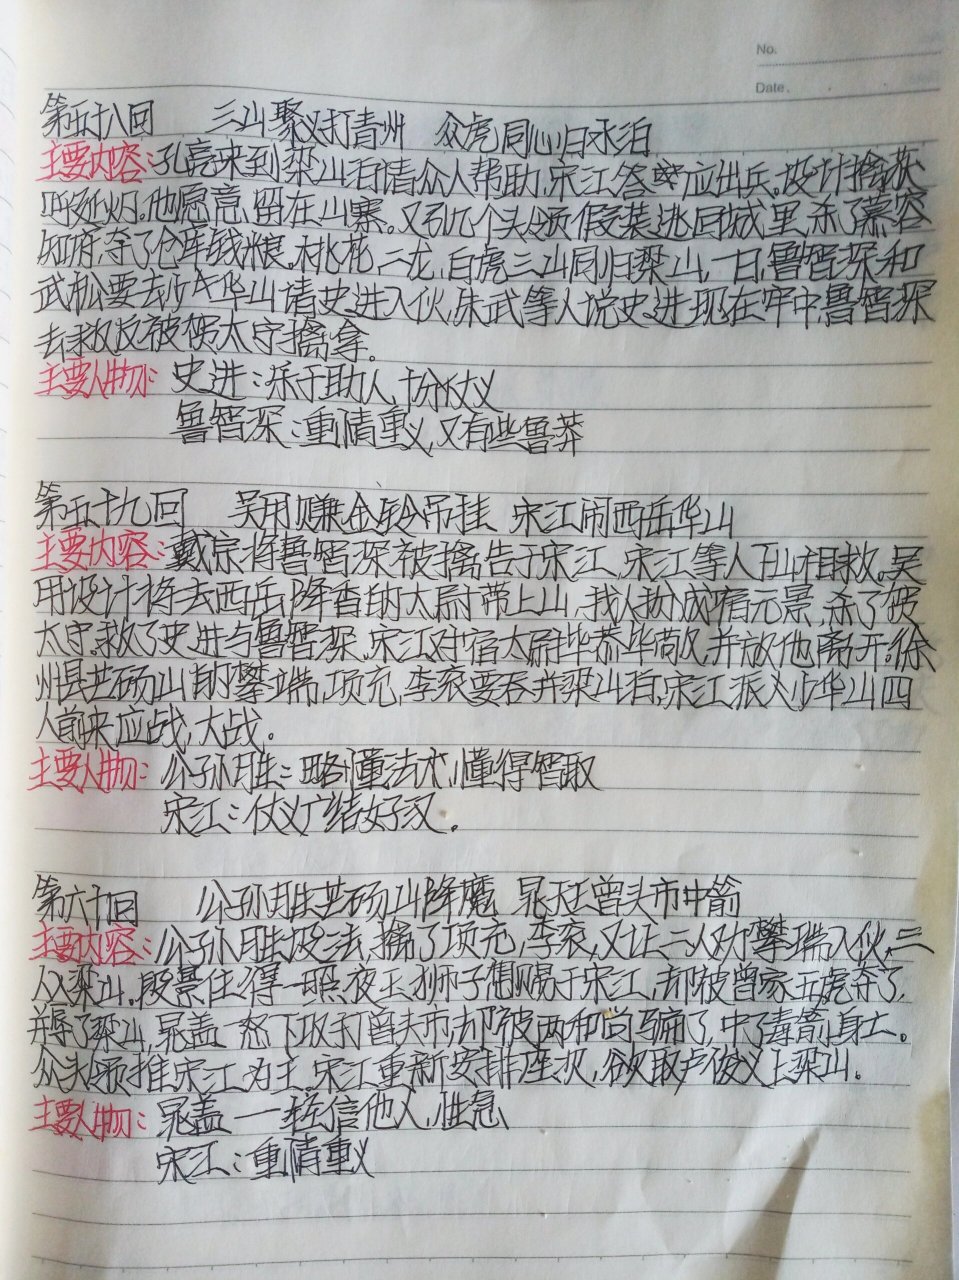 No.
Date.
第五十八回 三山聚义打青州 众虎同心归水泊
主要内容:孔亮来到梁山泊请众人帮助,宋江答应出兵。设计擒获
呼延灼。他愿意留在山寨。又引几个头领假装逃回城里,杀了慕容
知府,夺了仓库钱粮。桃花,二龙,白虎三山同归梁山,一日,鲁智深和
武松要去少华山请史进入伙,朱武等人说史进现在牢中,鲁智深
去救反被贺太守擒拿。
主要人物: 史进:乐于助人,十分仗义
鲁智深:重情重义,又有些鲁莽
第五十九回 吴用赚金铃吊挂 宋江闹西岳华山
主要内容:戴宗将鲁智深被擒告于宋江,宋江等人下山相救。吴
用设计将去西岳降香的太尉带上山,找人扮成宿元景,杀了贺
太守。救了史进与鲁智深。宋江对宿太尉毕恭毕敬,并放他离开。徐
州县芒砀山有攀瑞,项充,李衮要吞并梁山泊,宋江派少华山四
人前来应战,大战。
主要人物: 公孙胜:略懂法术,懂得智取
宋江:仗义广结好汉。
第六十回 公孙胜芒砀山降魔 晁天王曾头市中箭
主要内容:公孙胜设法,擒了项充,李衮,又让二人劝攀瑞入伙,三
人入梁山。段景住得一照夜玉狮子想赐于宋江,却被曾家五虎夺了,
并辱了梁山,晁盖一怒下攻打曾头市,却被两和尚骗了,中了毒箭身亡。
众头领推宋江为主。宋江重新安排座次,欲取卢俊义上梁山。
主要人物: 晁盖——轻信他人,性急
宋江:重情重义